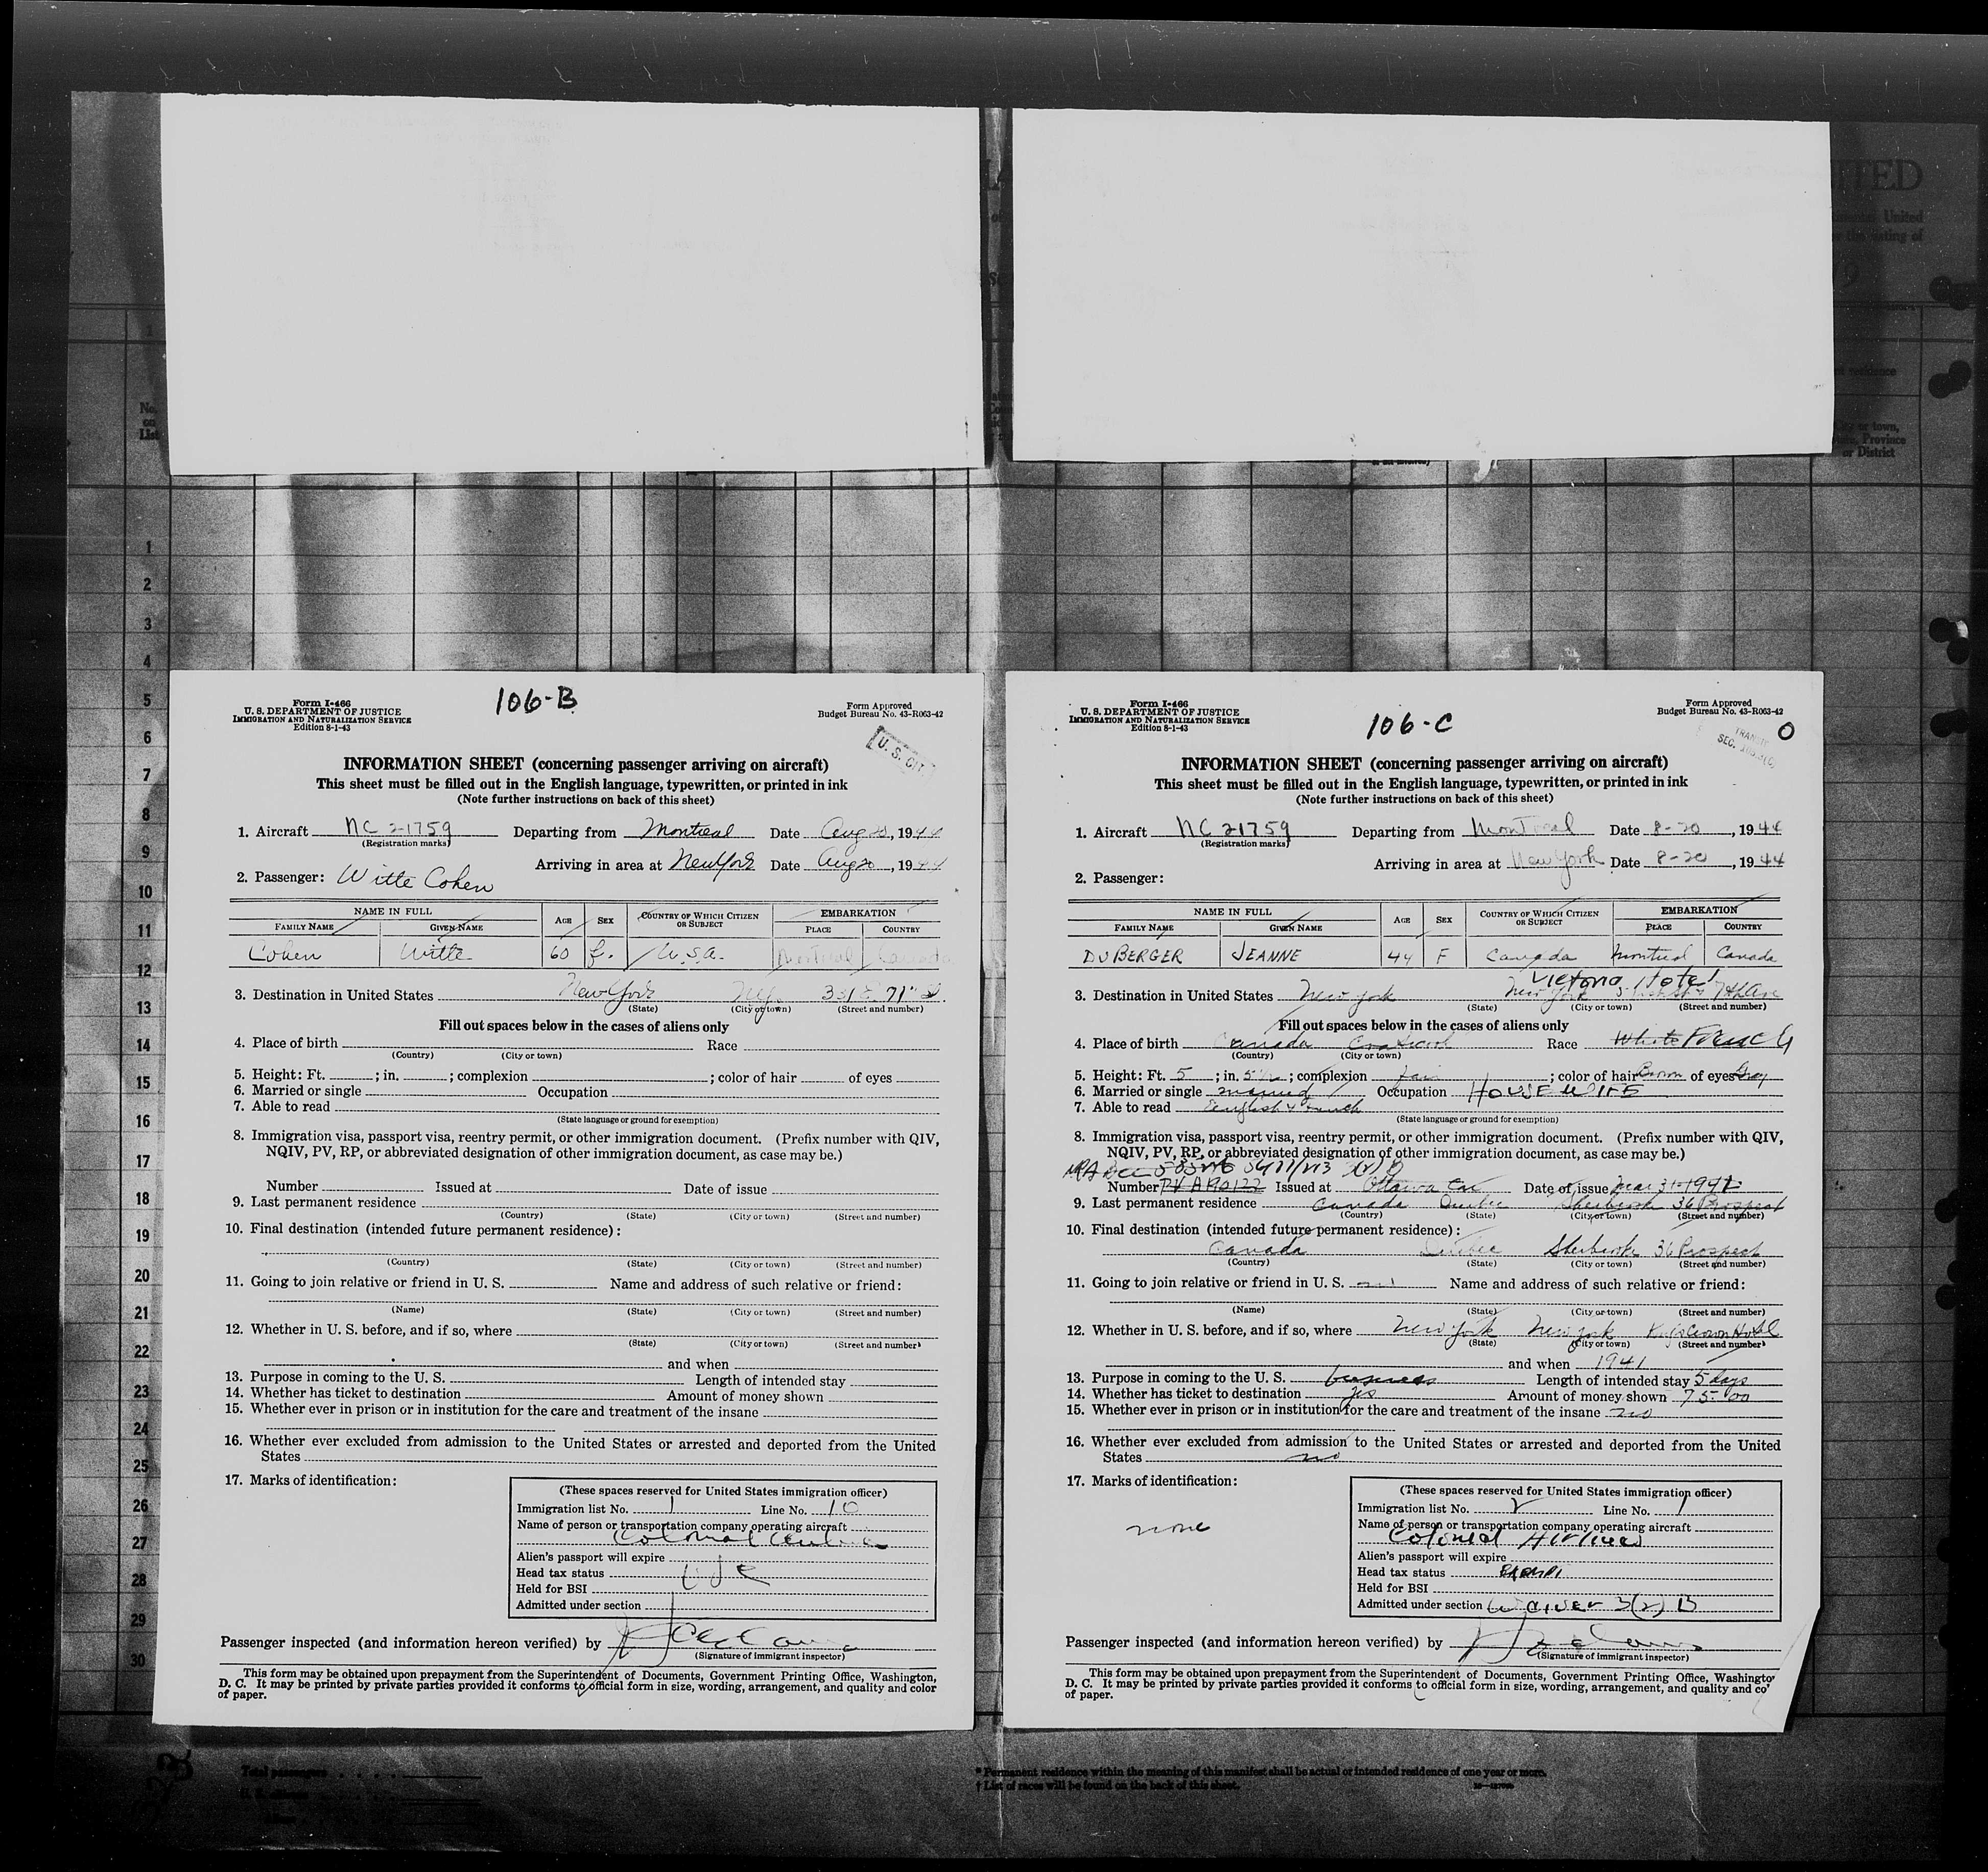 106-B
Form I-466
U. S. DEPARTMENT OF JUSTICE
IMMIGRATION AND NATURALIZATION SERVICE
Edition 8-1-43
Form Approved
Budget Bureau No. 43-R063-42
U. S. CIT.
INFORMATION SHEET (concerning passenger arriving on aircraft)
This sheet must be filled out in the English language, typewritten, or printed in ink
(Note further instructions on back of this sheet)
1. Aircraft NC 21759 Departing from Montreal Date Aug 20, 1944
(Registration marks)
Arriving in area at New York Date Aug 20, 1944
2. Passenger: Witte Cohen
NAME IN FULL AGE SEX COUNTRY OF WHICH CITIZEN OR SUBJECT EMBARKATION
FAMILY NAME GIVEN NAME PLACE COUNTRY
Cohen Witte 60 f. U.S.A. Montreal Canada
3. Destination in United States New York N.Y. 331 E. 71" St.
(State) (City or town) (Street and number)
Fill out spaces below in the cases of aliens only
4. Place of birth Race
(Country) (City or town)
5. Height: Ft. ; in. ; complexion ; color of hair of eyes
6. Married or single Occupation
7. Able to read
(State language or ground for exemption)
8. Immigration visa, passport visa, reentry permit, or other immigration document. (Prefix number with QIV,
NQIV, PV, RP, or abbreviated designation of other immigration document, as case may be.)
Number Issued at Date of issue
9. Last permanent residence
(Country) (State) (City or town) (Street and number)
10. Final destination (intended future permanent residence):
(Country) (State) (City or town) (Street and number)
11. Going to join relative or friend in U. S. Name and address of such relative or friend:
(Name) (State) (City or town) (Street and number)
12. Whether in U. S. before, and if so, where
(State) (City or town) (Street and number)
and when
13. Purpose in coming to the U. S. Length of intended stay
14. Whether has ticket to destination Amount of money shown
15. Whether ever in prison or in institution for the care and treatment of the insane
16. Whether ever excluded from admission to the United States or arrested and deported from the United
States
17. Marks of identification:
(These spaces reserved for United States immigration officer)
Immigration list No. 1 Line No. 10
Name of person or transportation company operating aircraft
Colonial
Alien's passport will expire
Head tax status
Held for BSI
Admitted under section
Passenger inspected (and information hereon verified) by
(Signature of immigrant inspector)
This form may be obtained upon prepayment from the Superintendent of Documents, Government Printing Office, Washington,
D. C. It may be printed by private parties provided it conforms to official form in size, wording, arrangement, and quality and color
of paper.
106-C
Form I-466
U. S. DEPARTMENT OF JUSTICE
IMMIGRATION AND NATURALIZATION SERVICE
Edition 8-1-43
Form Approved
Budget Bureau No. 43-R063-42
0
TRANSIT
SEC.
INFORMATION SHEET (concerning passenger arriving on aircraft)
This sheet must be filled out in the English language, typewritten, or printed in ink
(Note further instructions on back of this sheet)
1. Aircraft NC 21759 Departing from Montreal Date 8-20, 1944
(Registration marks)
Arriving in area at New York Date 8-20, 1944
2. Passenger:
NAME IN FULL AGE SEX COUNTRY OF WHICH CITIZEN OR SUBJECT EMBARKATION
FAMILY NAME GIVEN NAME PLACE COUNTRY
DUBERGER JEANNE 44 F Canada Montreal Canada
Victoria Hotel
3. Destination in United States New york New York 7th Ave
(State) (City or town) (Street and number)
Fill out spaces below in the cases of aliens only
4. Place of birth Canada Race White French
(Country) (City or town)
5. Height: Ft. 5 ; in. 5 1/2 ; complexion fair ; color of hair Brown of eyes Gray
6. Married or single married Occupation HOUSEWIFE
7. Able to read English & French
(State language or ground for exemption)
8. Immigration visa, passport visa, reentry permit, or other immigration document. (Prefix number with QIV,
NQIV, PV, RP, or abbreviated designation of other immigration document, as case may be.)
Number Issued at Ottawa Can Date of issue Mar 31-1942
9. Last permanent residence Canada Quebec Sherbrooke 36 Prospect
(Country) (State) (City or town) (Street and number)
10. Final destination (intended future permanent residence):
Canada Quebec Sherbrooke 36 Prospect
(Country) (State) (City or town) (Street and number)
11. Going to join relative or friend in U. S. no Name and address of such relative or friend:
(Name) (State) (City or town) (Street and number)
12. Whether in U. S. before, and if so, where New York New York Kings Crown Hotel
(State) (City or town) (Street and number)
and when 1941
13. Purpose in coming to the U. S. business Length of intended stay 5 days
14. Whether has ticket to destination yes Amount of money shown 75.00
15. Whether ever in prison or in institution for the care and treatment of the insane no
16. Whether ever excluded from admission to the United States or arrested and deported from the United
States no
17. Marks of identification:
none
(These spaces reserved for United States immigration officer)
Immigration list No. 2 Line No. 1
Name of person or transportation company operating aircraft
Colonial Airlines
Alien's passport will expire
Head tax status Exempt
Held for BSI
Admitted under section Waiver 3(2) B
Passenger inspected (and information hereon verified) by
(Signature of immigrant inspector)
This form may be obtained upon prepayment from the Superintendent of Documents, Government Printing Office, Washington
D. C. It may be printed by private parties provided it conforms to official form in size, wording, arrangement, and quality and co
of paper.
No. on List
1
2
3
4
5
6
7
8
9
10
11
12
13
14
15
16
17
18
19
20
21
22
23
24
25
26
27
28
29
30
Total passengers
* Permanent residence within the meaning of this manifest shall be actual or intended residence of one year or more.
† List of races will be found on the back of this sheet.